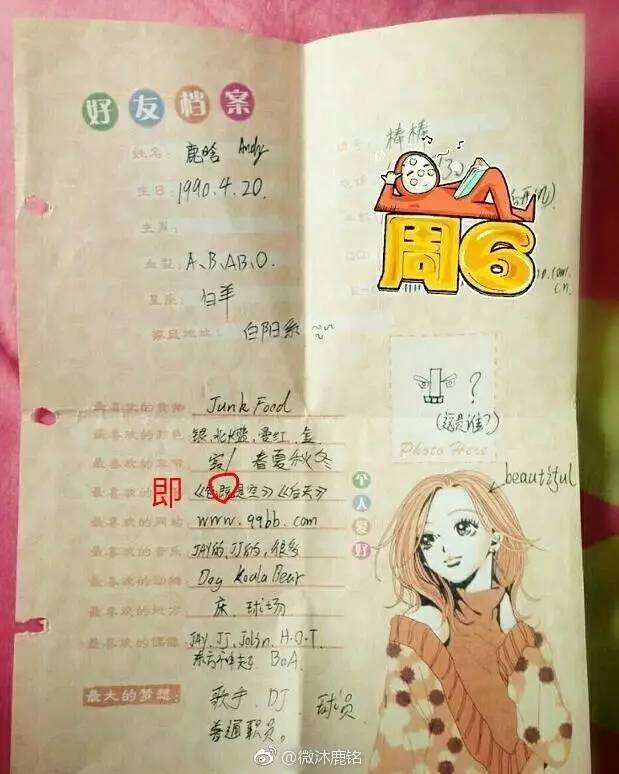 好友档案
姓名: 鹿晗 Andy
生日: 1990.4.20.
生肖:
血型: A、B、AB、O.
星座: 白羊
家庭地址: 白阳系
最喜欢的食物 Junk Food
最喜欢的颜色 银、北大蓝、曼红、金
最喜欢的季节 春夏秋冬
即 最喜欢的 《色既是空》《后天》
最喜欢的网站 www.99bb.com
最喜欢的音乐 JAY的,JJ的,很多
最喜欢的动物 Dog Koala Bear
最喜欢的地方 床、球场
最喜欢的偶像 JAY、JJ、Jolin、H.O.T、
东方神起 BoA、
最大的梦想: 歌手、DJ、球员
普通职员。
棒棒
周6
.com.
cn.
?
(这是谁?)
Photo Here
个人爱好
beautiful
@微沐鹿铭